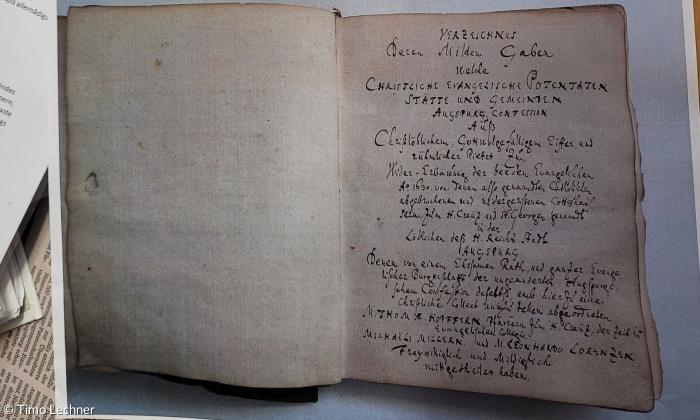 jts allernädigs
indes
pern,
aste
gs
VERZEICHNUS
Deren Milten Gaben
Welche
CHRISTLICHE EVANGELISCHE POTENTATEN
STÄTTE UND GEMEINDEN
AUGSPURG. CONFESSION
Auß
Christlöblichem, Gottwolgefälligem Eiffer und
rühmlicher Pietet Zu
Wider-Erbawung der beeden Evangelischen
Aō 1630. von denen also genandten Catholischen
abgebrochenen und nidergerissenen Gottshäu
sern, Zum H. Creuz und St. Georgen genandt
in der
Löblichen deß H. Reichs Stadt
AUGSPURG
Denen von einem Ehrsamen Rath, und gantzer Evange
lischer Burgerschafft der ungeänderten Augspurgi
schen Confession daselbst, umb hierzu eine
Christliche Collect abgeordneten
M. THOMA HOPFFERN Pfarrern Zum H. Creuz, der Zeit im
Evangelischen Collegio
MICHAELI MILLERN, und M. LEONHARDO LORENZEN
Freywilliglich und Mildiglich
mitgetheilet haben.
© Timo Lechner